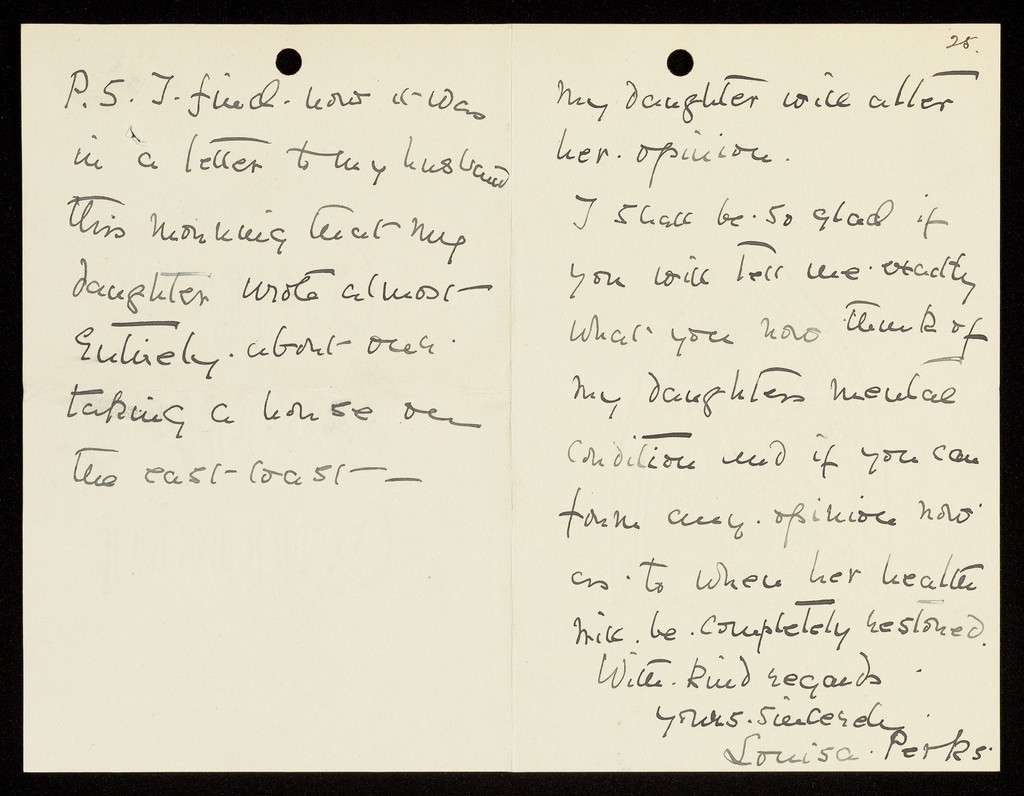 P.S. I find now it was
in a letter to my husband
this morning that my
daughter wrote almost
entirely about our
taking a house on
the east coast —
25.
My daughter will alter
her opinion.
I shall be so glad if
you will tell me exactly
what you now think of
my daughters mental
condition and if you can
form any opinion now
as to when her health
will be completely restored.
With kind regards
yours sincerely
Louisa Perks.